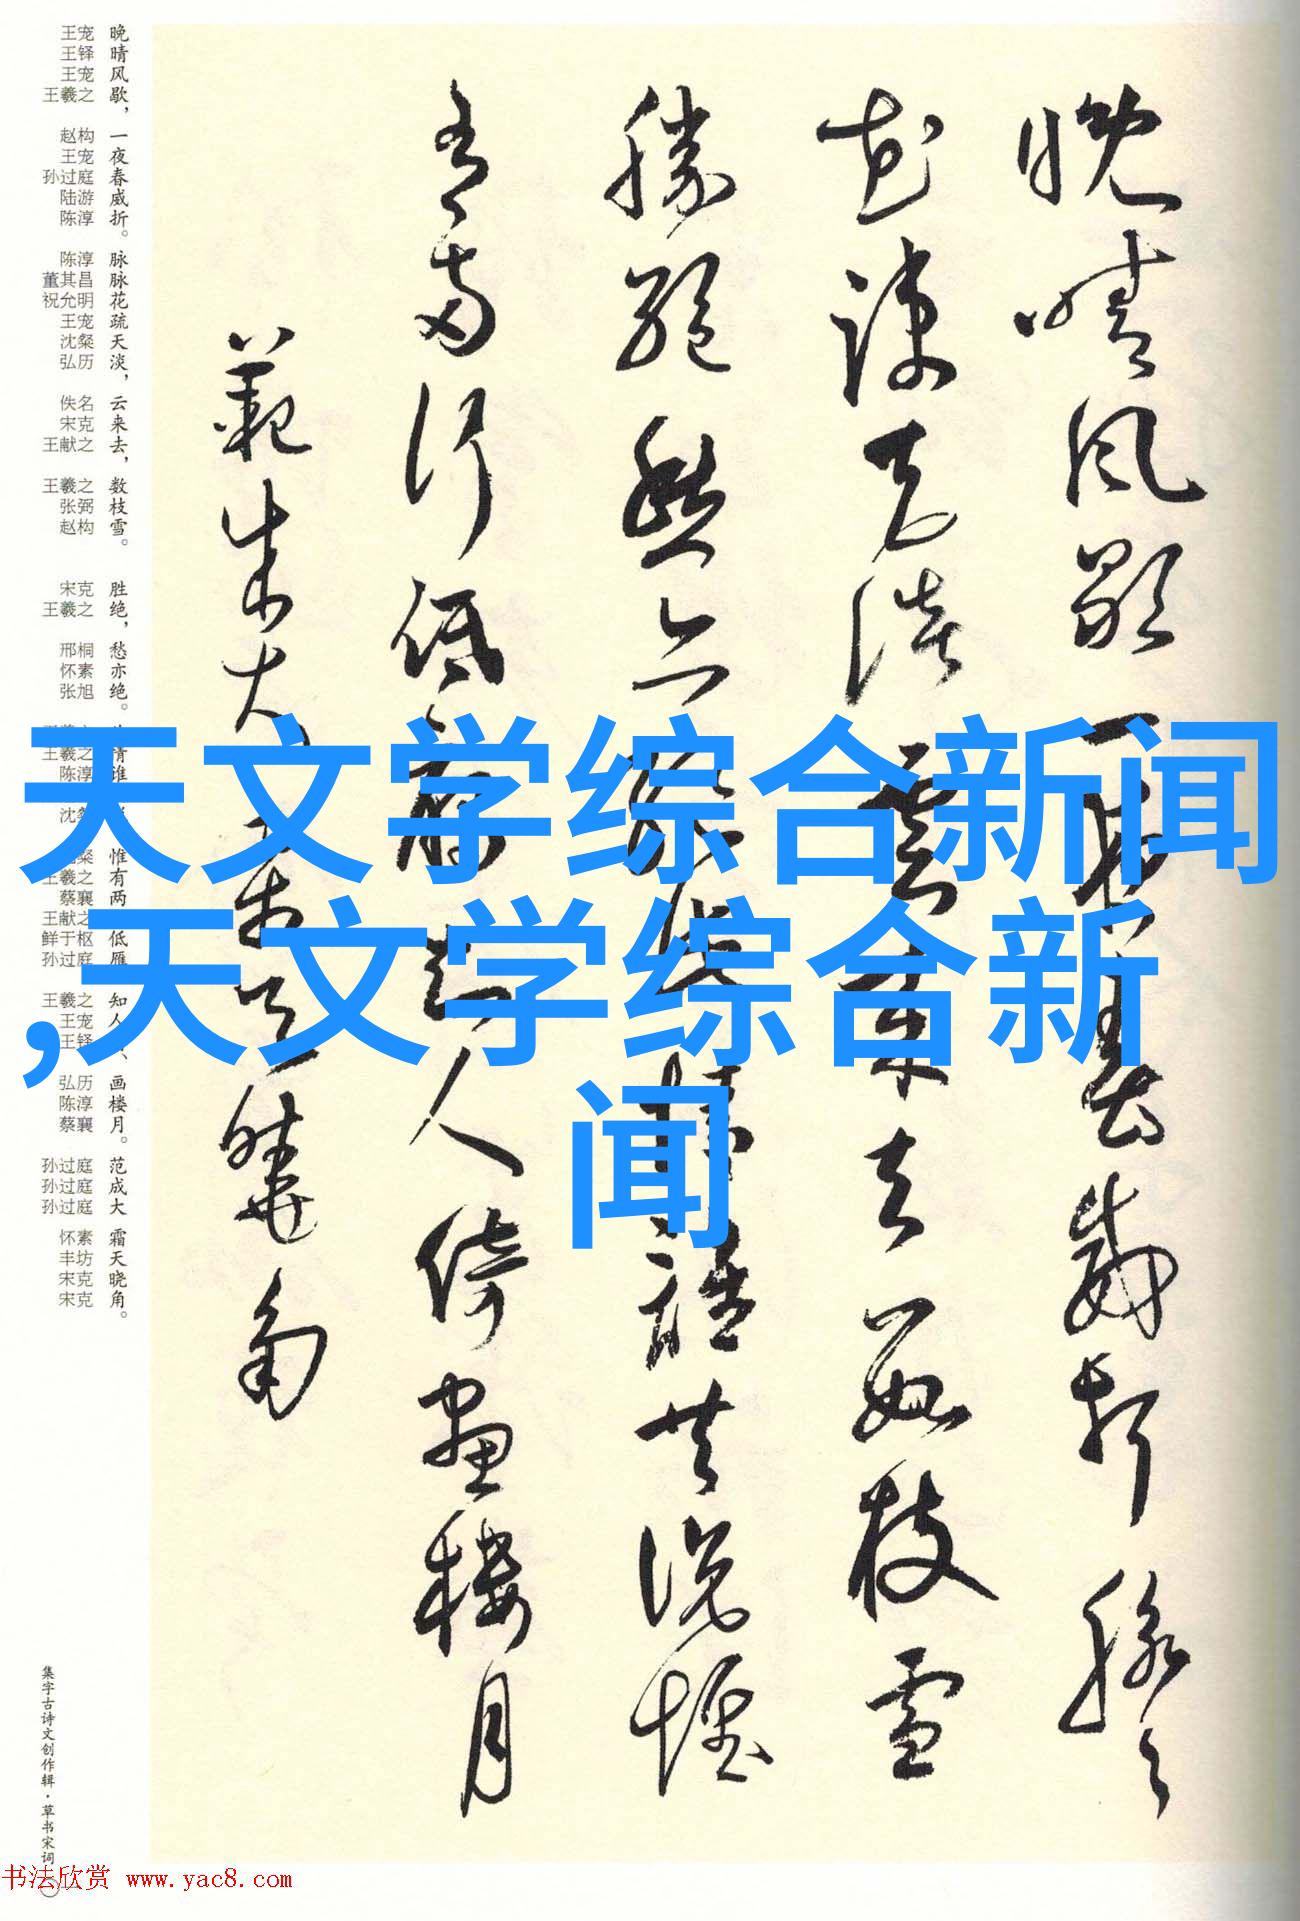 晚晴風歇一夜春威折脉々
花疎天淡雲來去數枝雪
勝絕愁亦絕情誰共說惟
有兩行低雁知人倚畫樓月
範成大霜天曉角
天文学综合新闻
,天文学综合新
闻
晚晴风歇，一夜春威折。脉脉花疏天淡，云来去，数枝雪。
胜绝，愁亦绝。情谁惟有两低雁知人画楼月。范成大 霜天晓角。
王宠
王铎
王宠
王羲之
赵构
王宠
孙过庭
陆游
陈淳
陈淳
董其昌
祝允明
王宠
沈粲
弘历
佚名
宋克
王献之
王羲之
张弼
赵构
宋克
王羲之
邢桐
怀素
张旭
王羲之
陈淳
沈粲
王羲之
蔡襄
王献之
鲜于枢
孙过庭
王羲之
王宠
王铎
弘历
陈淳
蔡襄
孙过庭
孙过庭
孙过庭
怀素
丰坊
宋克
宋克
集字古诗文创作辑·草书宋词
书法欣赏 www.yac8.com